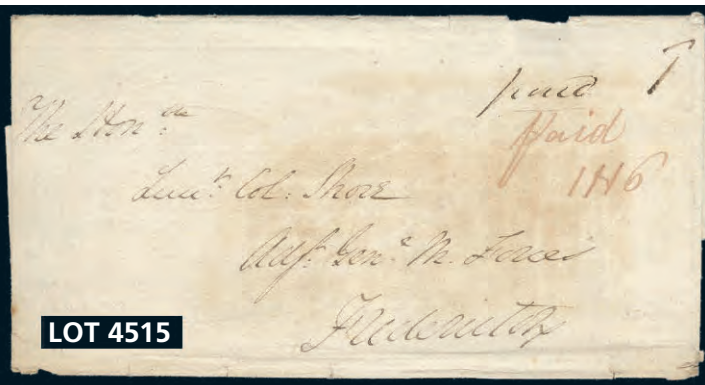 paid 1
Paid
1N6
The Honble
Lieut. Col: Shore
Adjt. Genl. M. Forces
Fredericton
LOT 4515